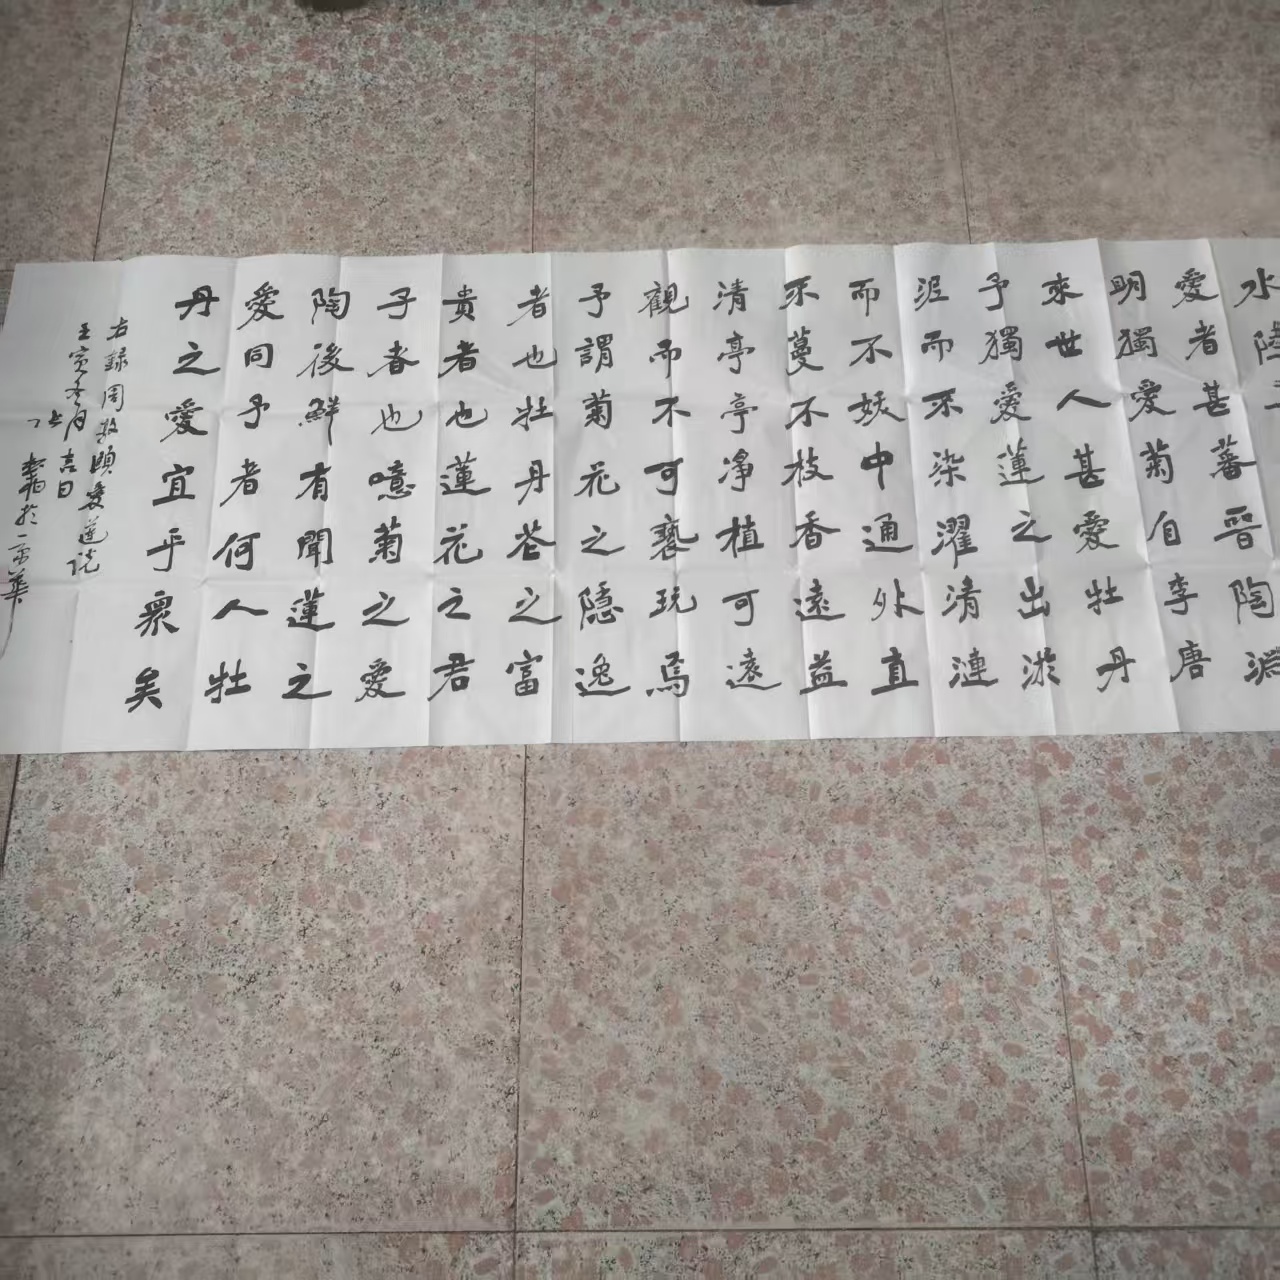 水陸
愛者甚蕃晉陶淵
明獨愛菊自李唐
來世人甚愛牡丹
予獨愛蓮之出淤
泥而不染濯清漣
而不妖中通外直
不蔓不枝香遠益
清亭亭淨植可遠
觀而不可褻玩焉
予謂菊花之隱逸
者也牡丹花之富
貴者也蓮花之君
子者也噫菊之愛
陶後鮮有聞蓮之
愛同予者何人牡
丹之愛宜乎衆矣
右録周敦頤愛蓮説
壬寅冬月吉日
於京華